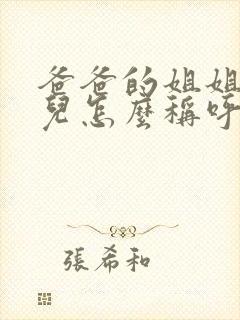 爸爸的姐姐
兒怎麼稱呼
張希和